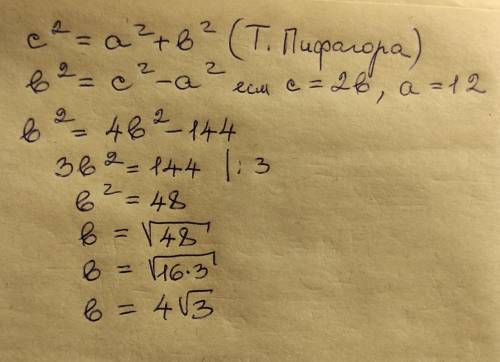 c² = a² + b² (Т. Пифагора)
b² = c² - a² если c = 2b, a = 12
b² = 4b² - 144
3b² = 144 |: 3
b² = 48
b = √48
b = √16·3
b = 4√3